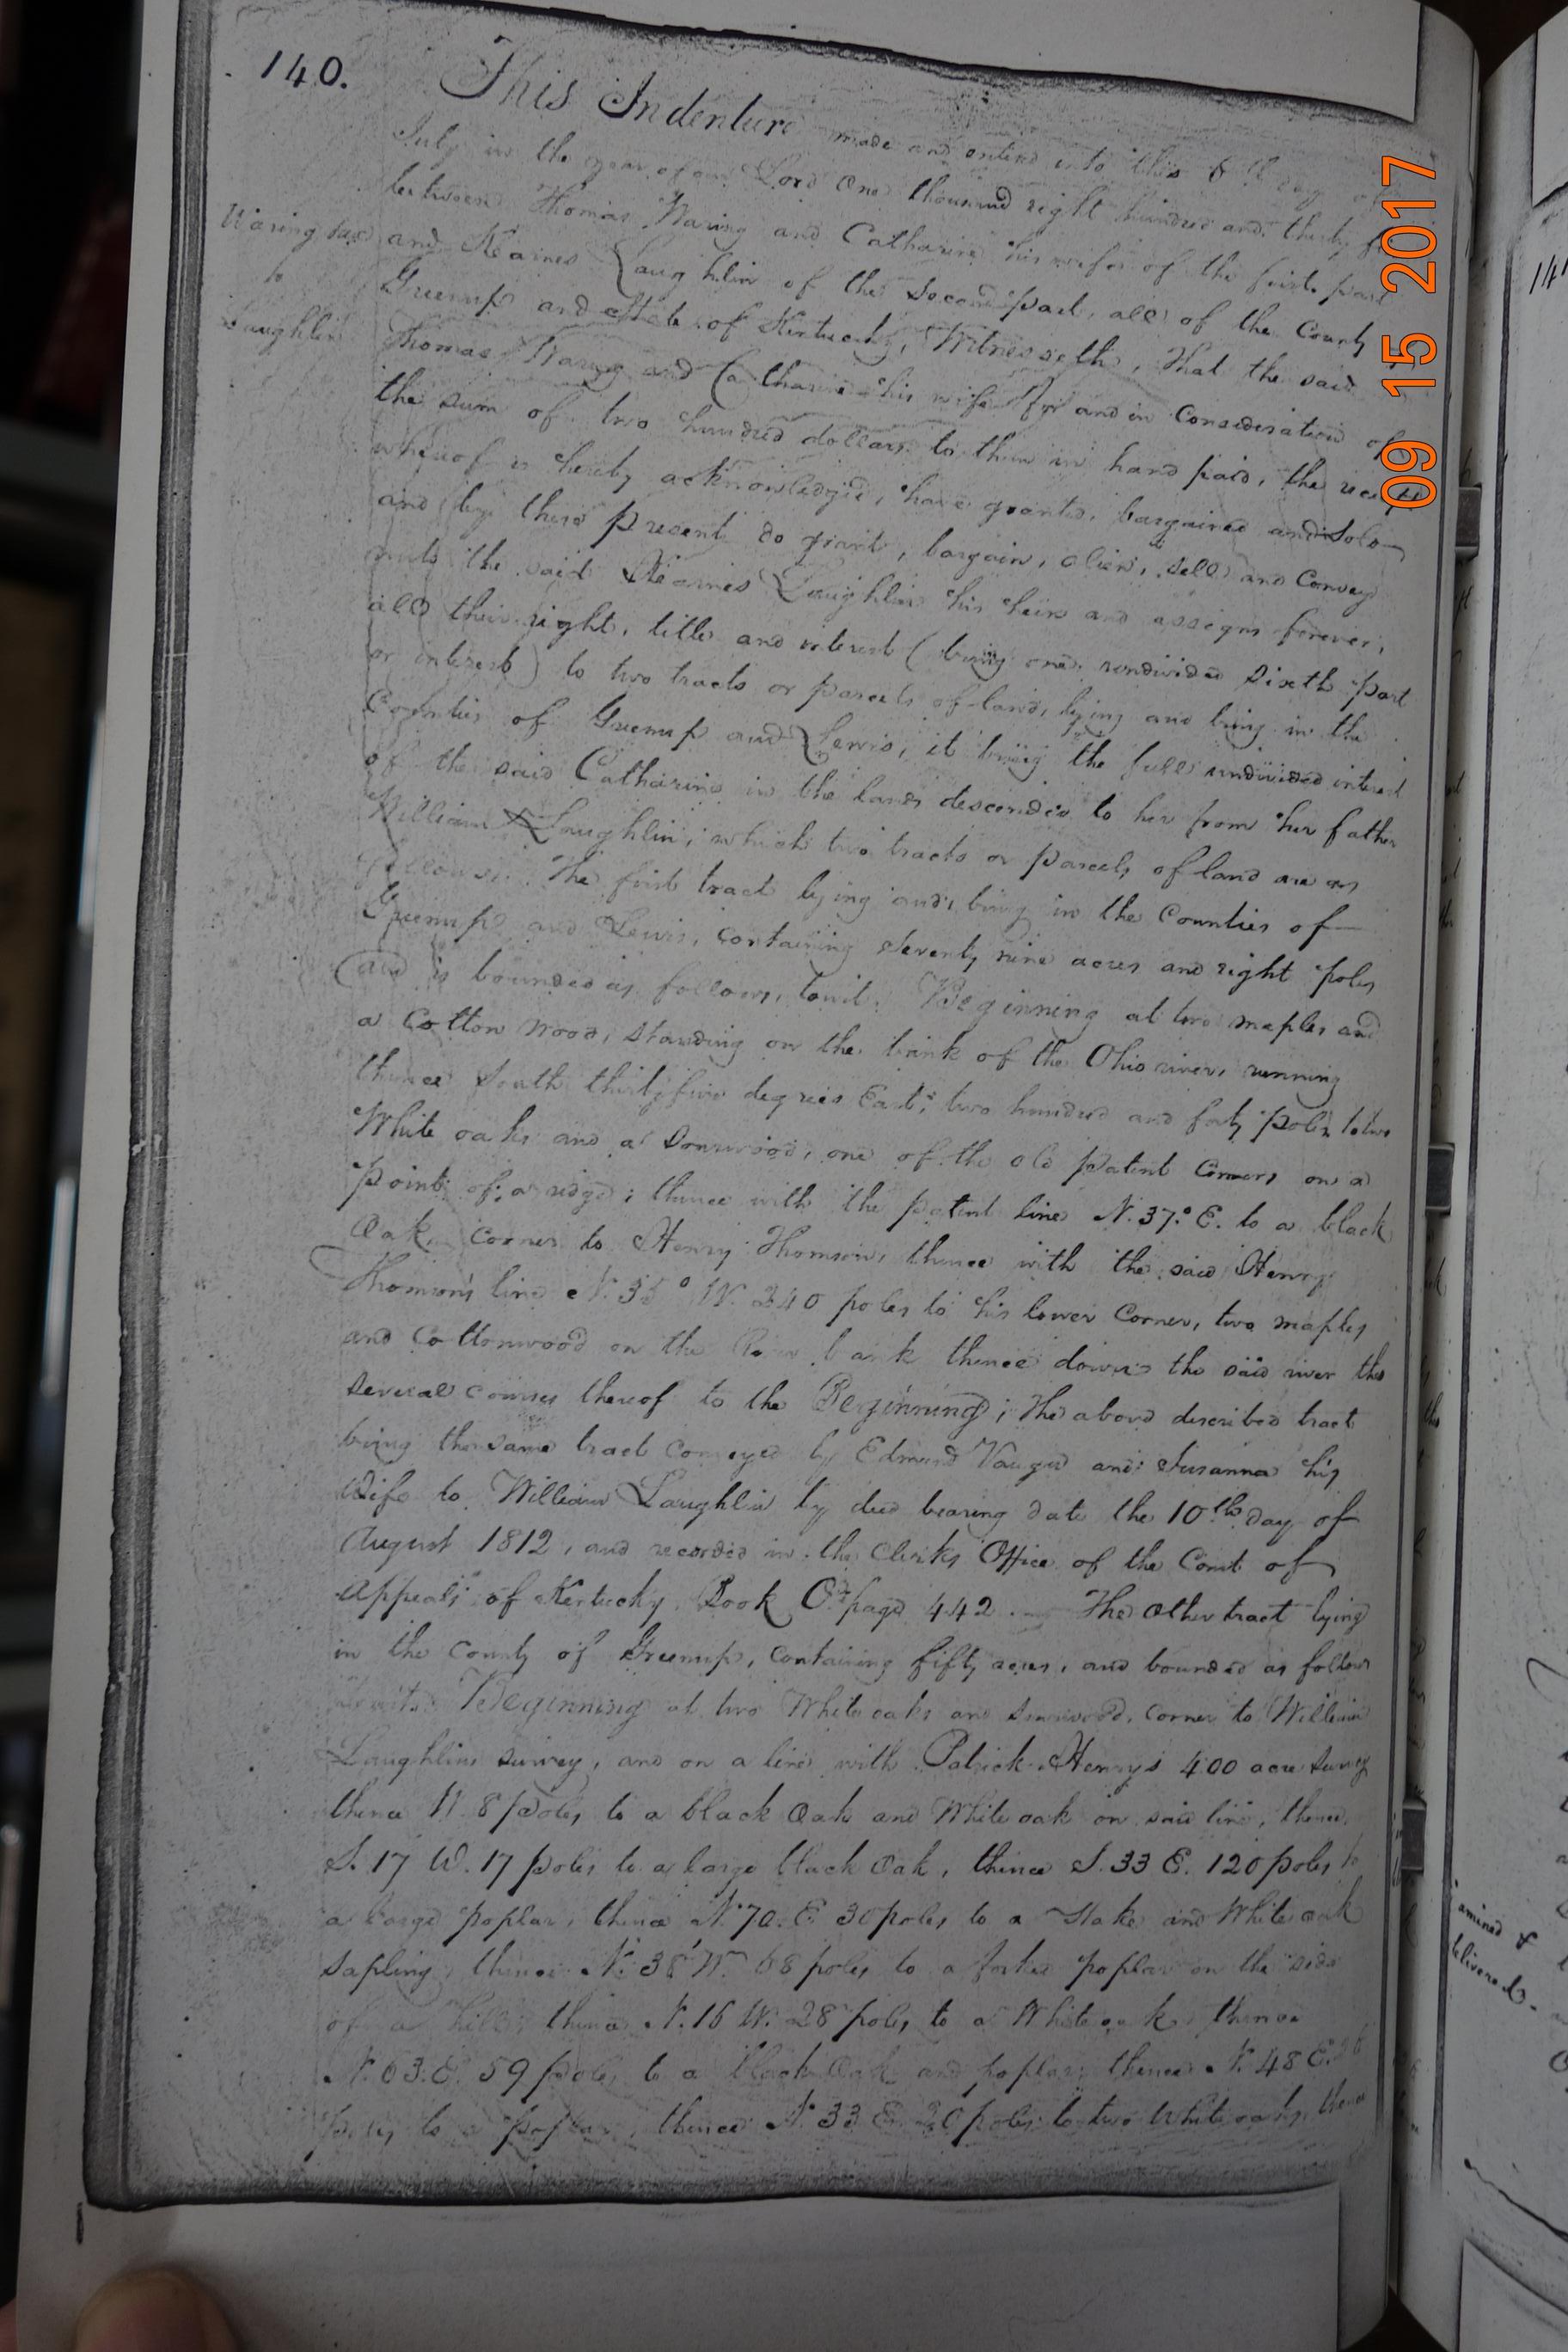 140.
This Indenture made and entered into this 6th day of
July in the year of our Lord One thousand eight hundred and thirty
between Thomas Waring and Catharine his wife of the first part
Waring &c
to
Laughlin
and Kearnes Laughlin of the Second part, all of the County
Greenup and State of Kentucky, Witnesseth, That the said
Thomas Waring and Catharine his wife for and in Consideration of
the sum of two hundred dollars to them in hand paid, the receipt
whereof is hereby acknowledged, have granted, bargained and Sold
and by these present do grant, bargain, alien, sell and Convey
unto the said Kearnes Laughlin his heirs and assigns forever,
all their right, title and interest (being one undivided Sixth part
or interest) to two tracts or parcels of land, lying and being in the
Counties of Greenup and Lewis, it being the full undivided interest
of the said Catharine in the lands descended to her from her father
William Laughlin; which two tracts or parcels of land are as
follows: The first tract lying and being in the Counties of
Greenup and Lewis, containing Seventy nine acres and eight poles
and is bounded as follows, towit: Beginning at two maples and
a Cotton wood, standing on the bank of the Ohio river, running
thence South thirty five degrees East, two hundred and forty poles to two
White oaks and a Sourwood, one of the old patent Corners on a
point of a ridge; thence with the patent line N. 37.° E. to a black
Oak, corner to Henry Thomson, thence with the said Henry
Thomson's line N. 35° W. 240 poles to his lower Corner, two maples
and Cottonwood on the River bank thence down the said river the
several courses thereof to the Beginning; the above described tract
being the same tract conveyed by Edmund Vaugn and Susanna his
Wife to William Laughlin by deed bearing date the 10th day of
August 1812, and recorded in the Clerks Office of the Court of
Appeals of Kentucky Book O. page 442. The other tract lying
in the County of Greenup, containing fifty acres, and bounded as follows
towit: Beginning at two White oaks and Sourwood, corner to William
Laughlins survey, and on a line with Patrick Henrys 400 acre Survey
thence W. 8 poles to a black Oak and White oak on said line, thence
S. 17 W. 17 poles to a large black Oak, thence S. 33 E. 120 poles to
a large poplar, thence N. 70. E 30 poles to a Stake and White oak
sapling, thence N. 38 W. 68 poles to a forked poplar on the side
of a hill, thence N. 16 W. 28 poles to a White oak thence
N. 63. E. 59 poles to a black Oak and poplar; thence N. 48 E.
poles to a poplar, thence N. 33 E. 20 poles to two White oaks, thence
09 15 2017
amined &
delivered to